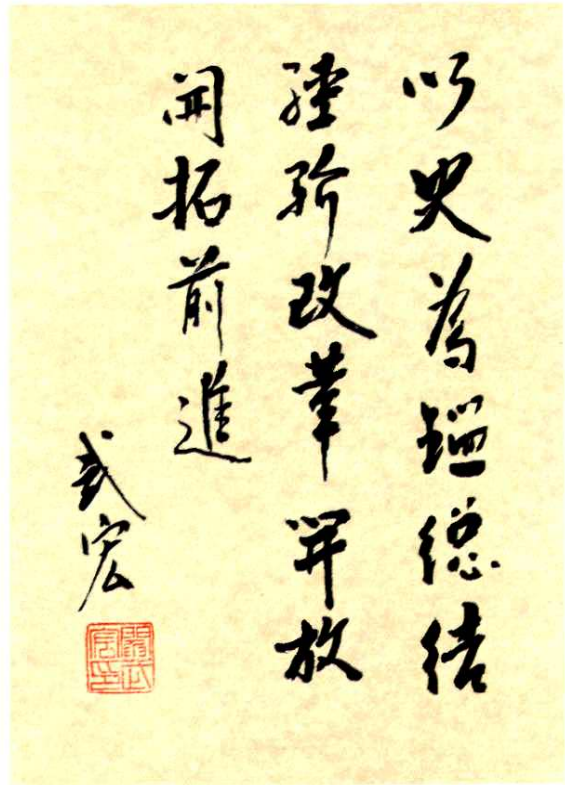 以史為鑑總結
經驗改革開放
開拓前進
武宏